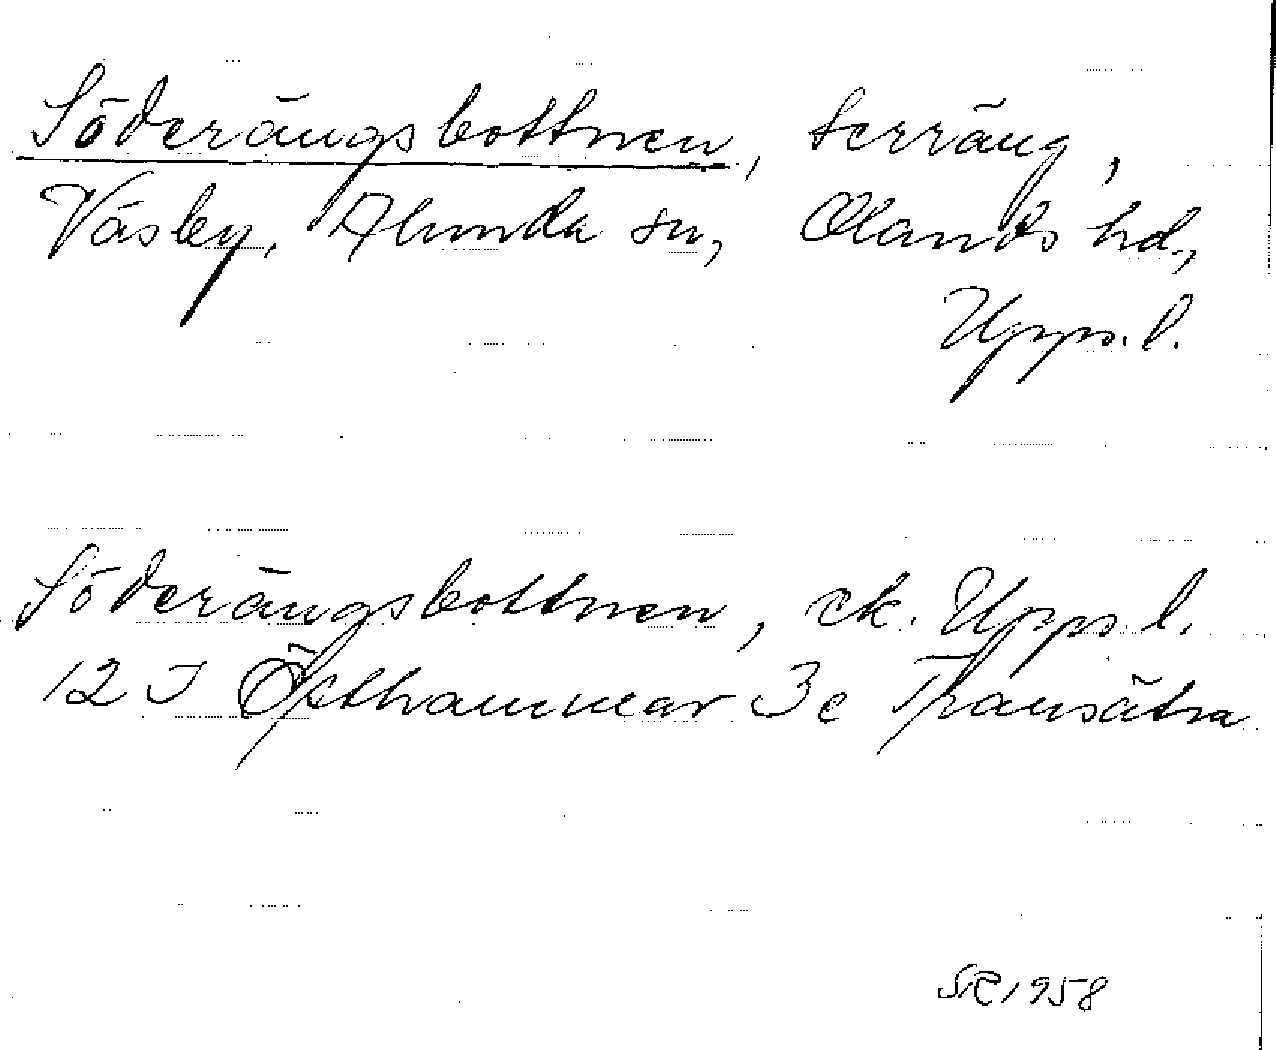 Söderängsbottnen, terräng,
Väsby, Alunda sn, Olands hd.,
Upps. l.
Söderängsbottnen, ek. Upps. l.
12 I Östhammar 3e Transätra
SR 1958